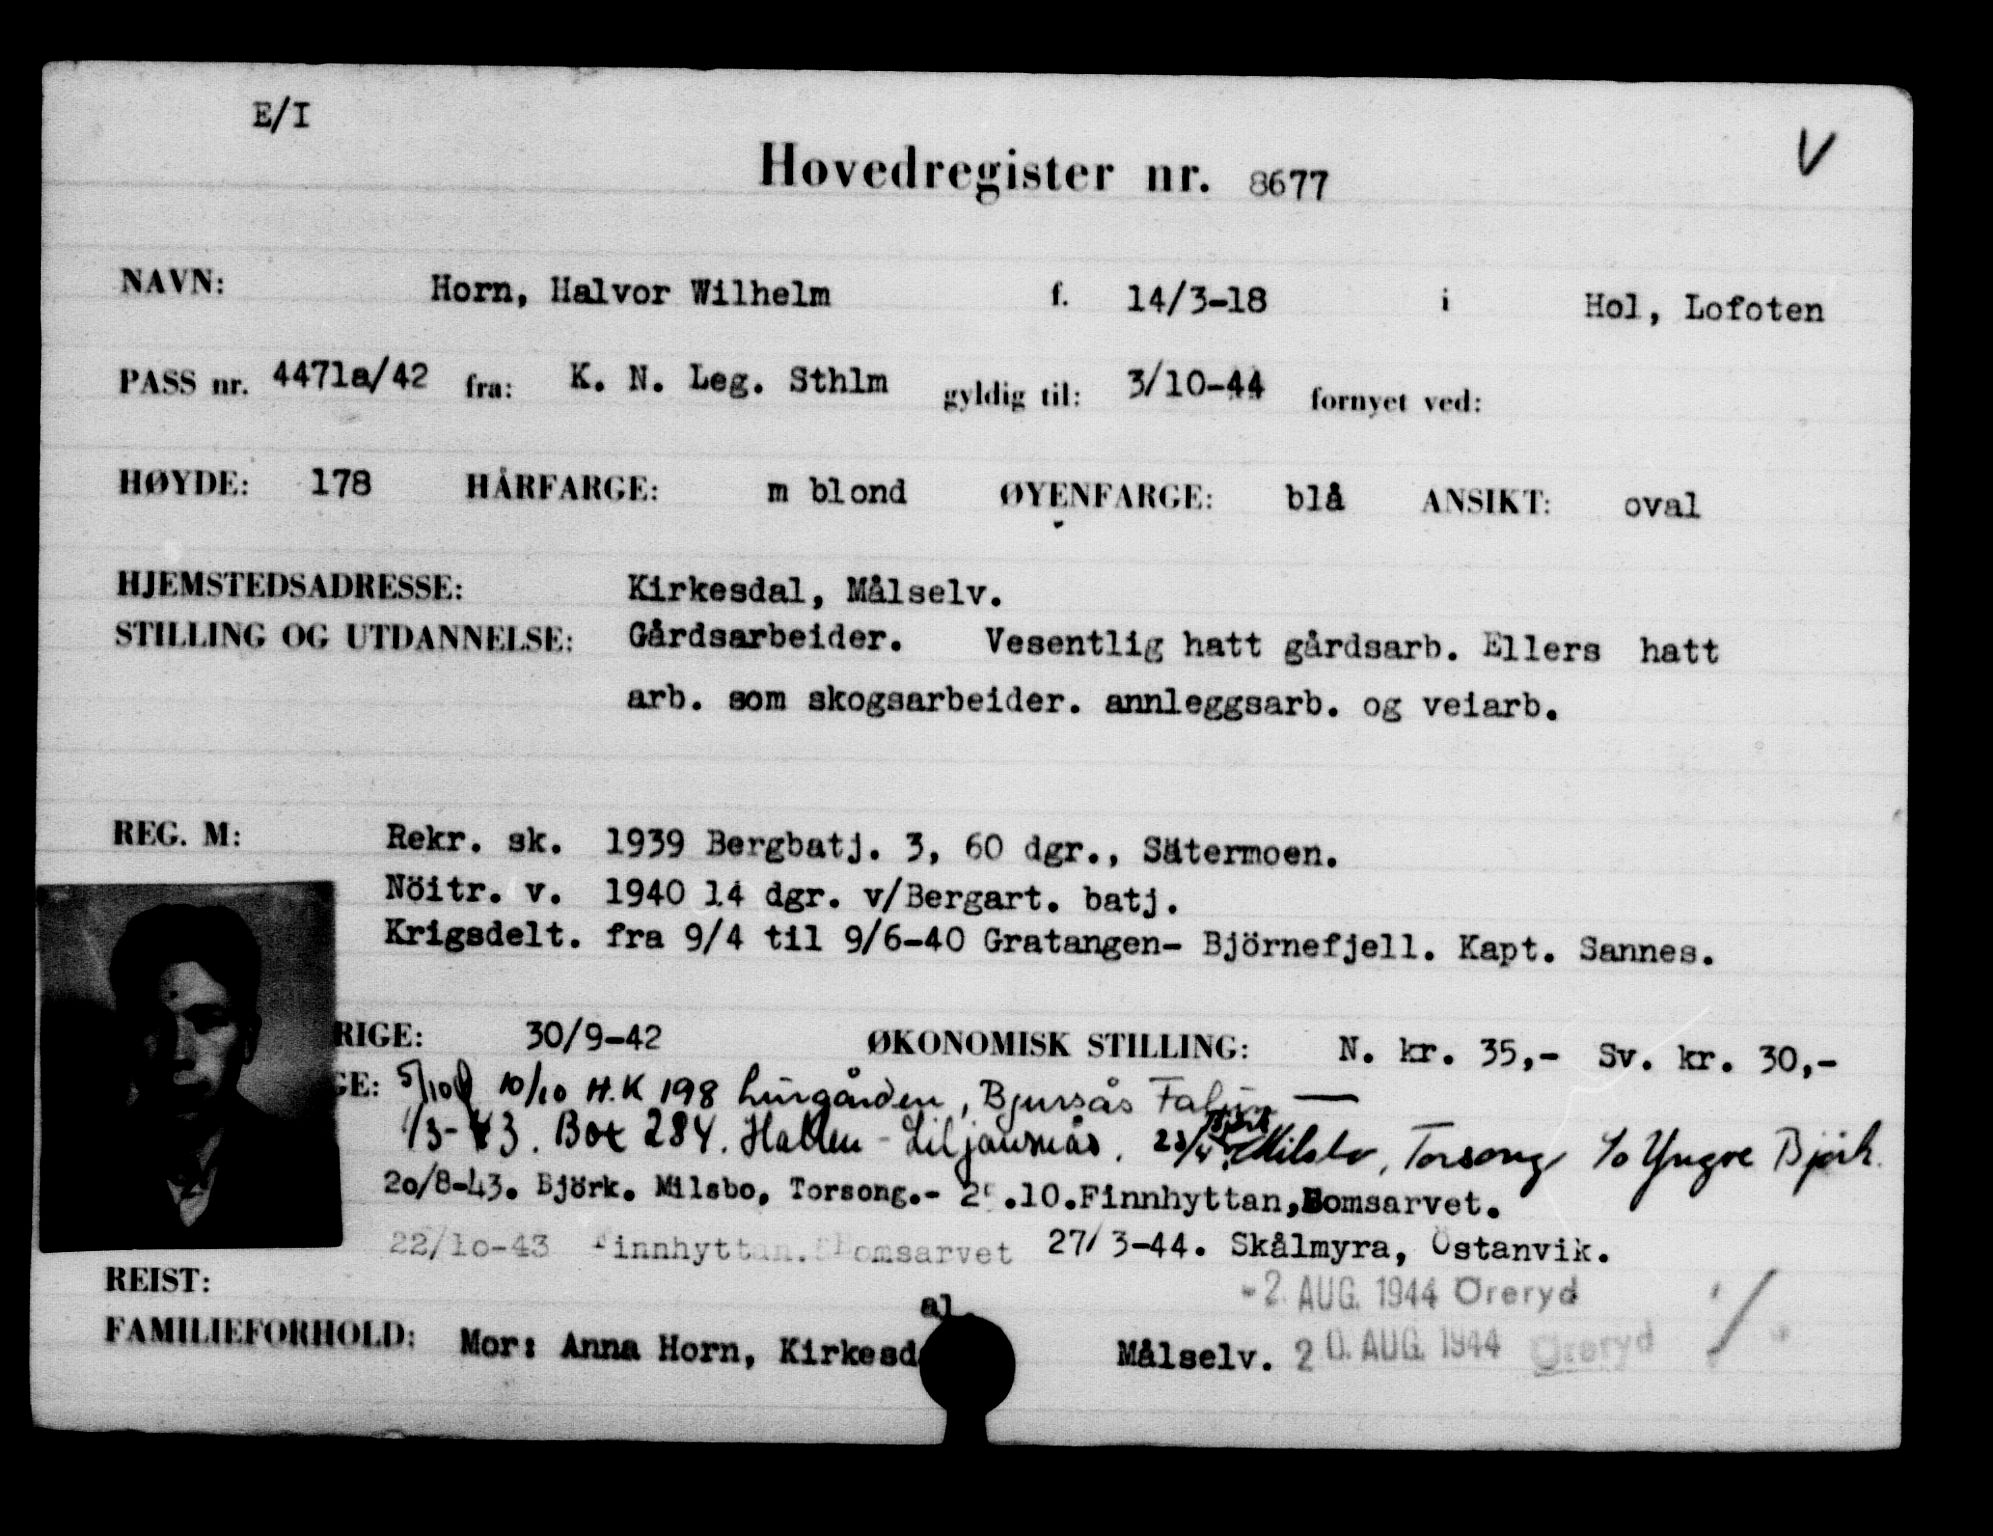 E/I
V
Hovedregister nr. 8677
NAVN: Horn, Halvor Wilhelm f. 14/3-18 i Hol, Lofoten
PASS nr. 4471a/42 fra: K. N. Leg. Sthlm gyldig til: 3/10-44 fornyet ved:
HØYDE: 178 HÅRFARGE: m blond ØYENFARGE: blå ANSIKT: oval
HJEMSTEDSADRESSE: Kirkesdal, Målselv.
STILLING OG UTDANNELSE: Gårdsarbeider. Vesentlig hatt gårdsarb. Ellers hatt
arb. som skogsarbeider. annleggsarb. og veiarb.
REG. M: Rekr. sk. 1939 Bergbatj. 3, 60 dgr., Sätermoen.
Nöitr. v. 1940 14 dgr. v/Bergart. batj.
Krigsdelt. fra 9/4 til 9/6-40 Gratangen- Björnefjell. Kapt. Sannes.
RIGE: 30/9-42 ØKONOMISK STILLING: N. kr. 35,- Sv. kr. 30,-
GE: 10/10 H.K 198 Lurgården, Bjursås Falun —
1/3-43. Box 284. Hallen - Liljansnäs. Milsbo, Torsong c/o Yngve Björk.
20/8-43. Björk. Milsbo, Torsong.- .10.Finnhyttan,Bomsarvet.
22/10-43 Finnhyttan. 27/3-44. Skålmyra, Östanvik.
REIST: -2. AUG. 1944 Öreryd
al.
FAMILIEFORHOLD: Mor: Anna Horn, Kirkesd Målselv. 20. AUG. 1944 Öreryd